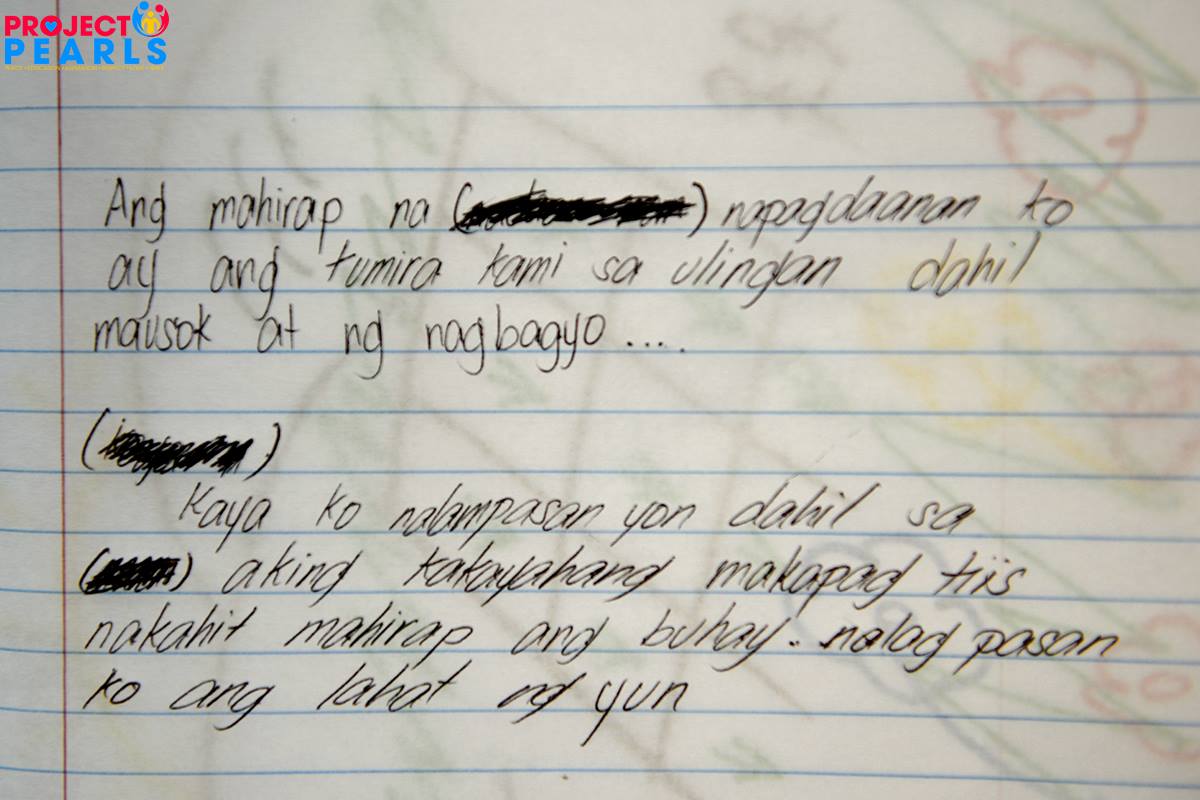 PROJECT
PEARLS
Ang mahirap na ( ) napagdaanan ko
ay ang tumira kami sa ulingan dahil
mausok at ng nagbagyo ....
( )
Kaya ko nalampasan yon dahil sa
( ) aking kakayahang makapag tiis
nakahit mahirap ang buhay. nalag pasan
ko ang lahat ng yun